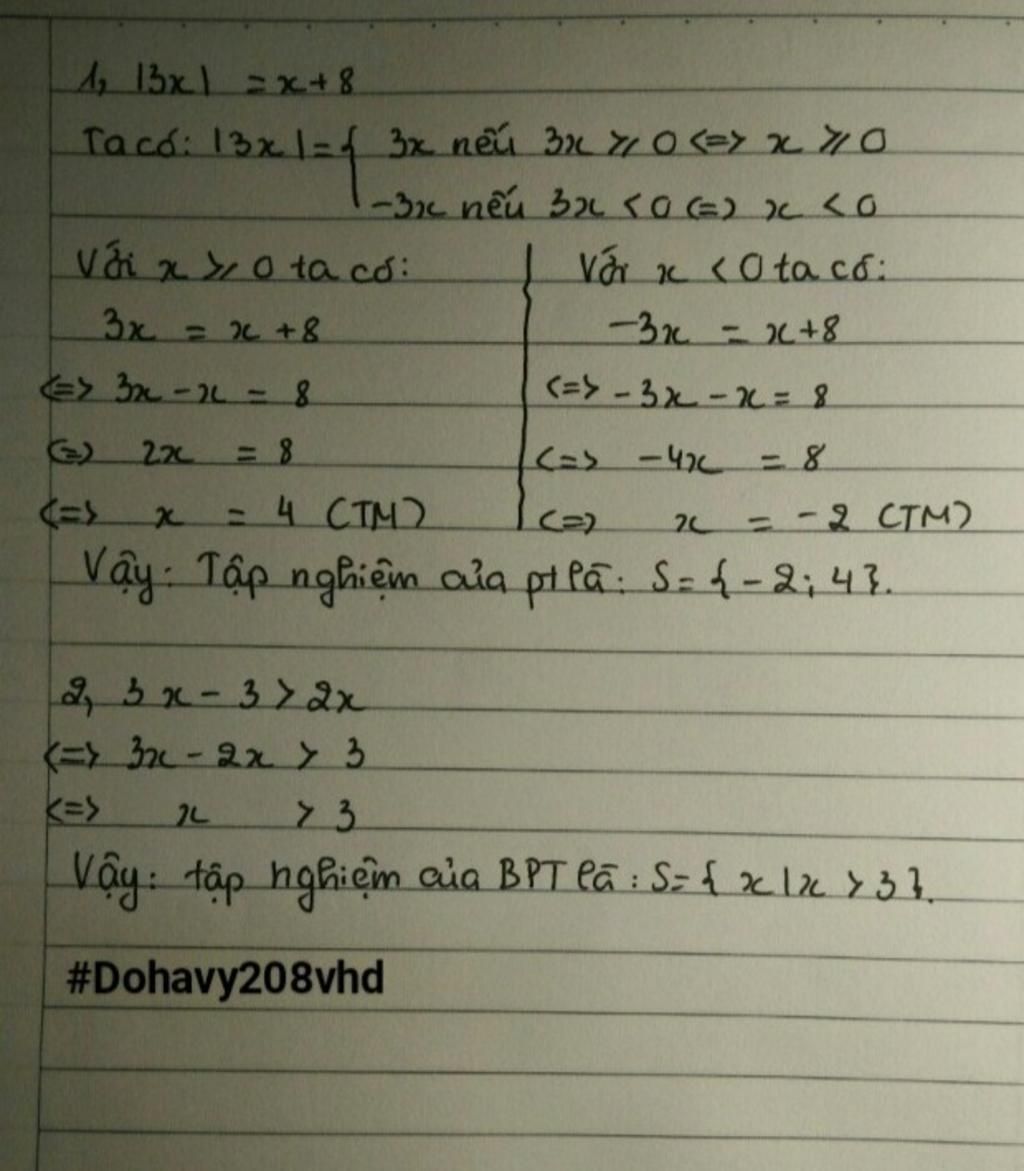 1, |3x| = x+8
Ta có: |3x|={ 3x nếu 3x ⩾ 0 <=> x ⩾ 0
-3x nếu 3x < 0 <=> x < 0
Với x ⩾ 0 ta có:
3x = x +8
<=> 3x - x = 8
<=> 2x = 8
<=> x = 4 (TM)
Với x < 0 ta có:
-3x = x+8
<=> -3x - x = 8
<=> -4x = 8
<=> x = -2 (TM)
Vậy: Tập nghiệm của pt là: S={-2; 4}.
2, 3x - 3 > 2x
<=> 3x - 2x > 3
<=> x > 3
Vậy: tập nghiệm của BPT là: S={ x | x > 3 }.
#Dohavy208vhd